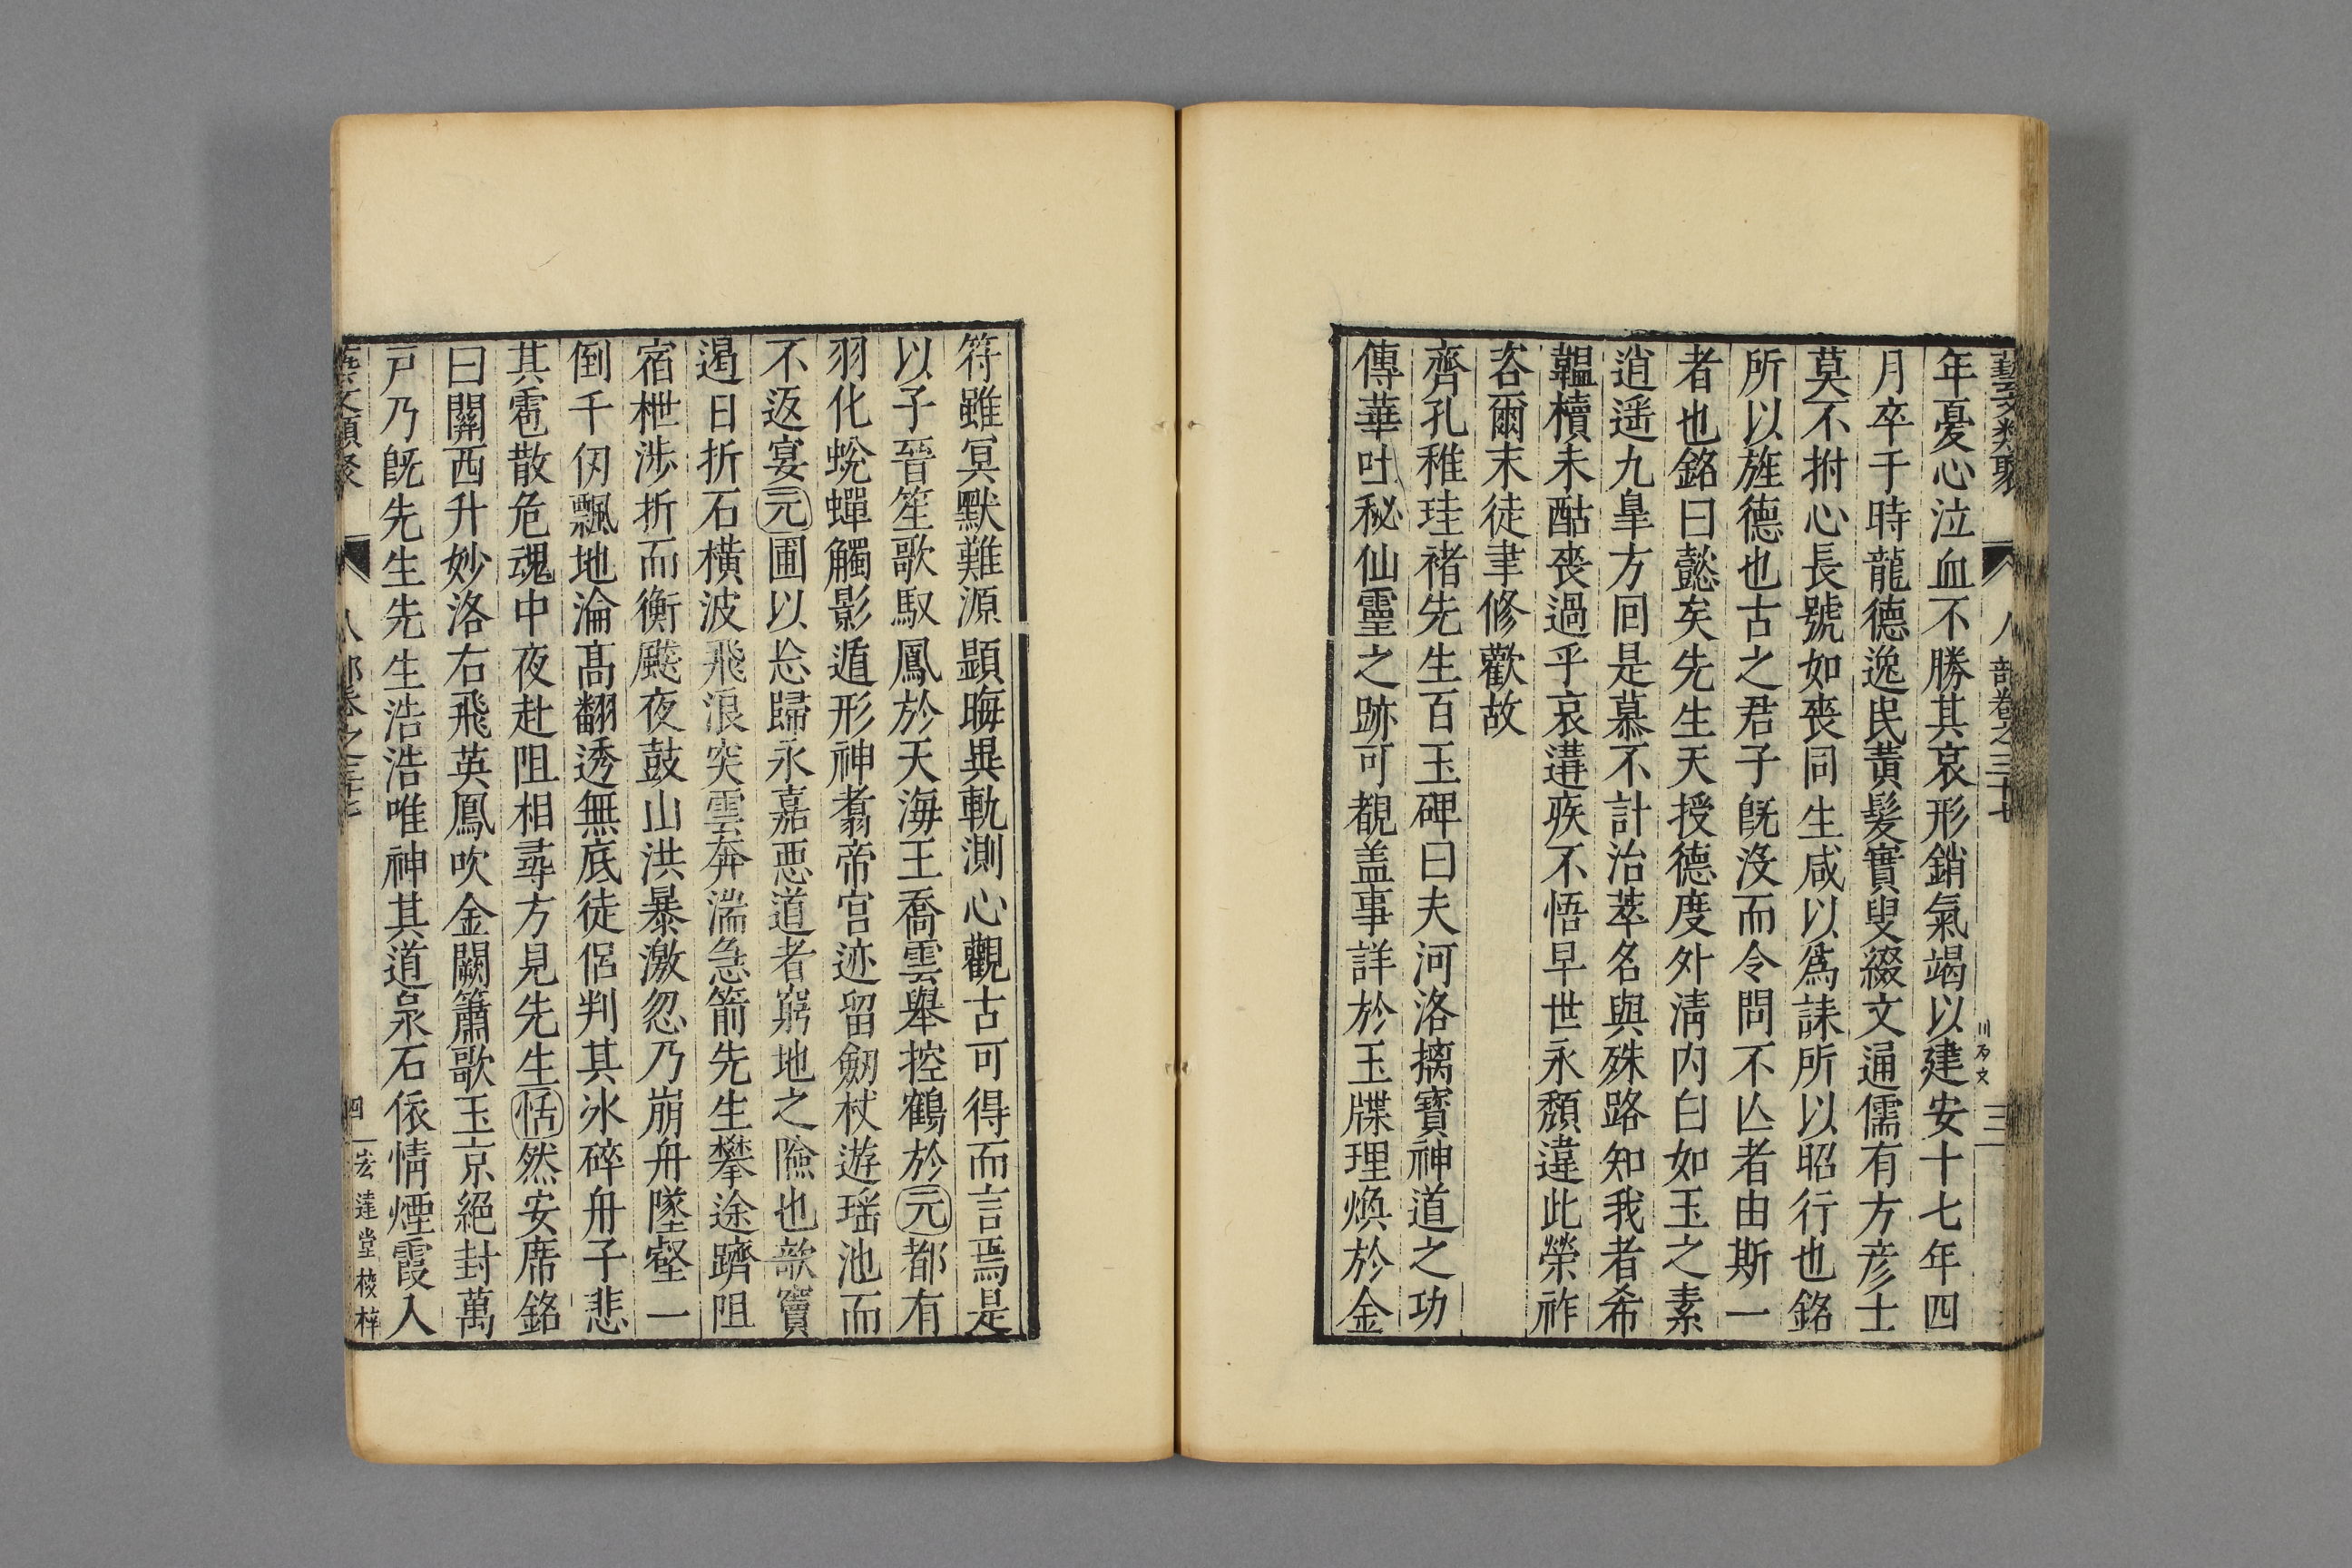 藝文類聚 八 部卷之三十七 三
年憂心泣血不勝其哀形銷氣竭以建安十七年四
月卒于時龍德逸民黃髮實叟綴文通儒有方彥士
莫不拊心長號如喪同生咸以爲誄所以昭行也銘
所以旌德也古之君子旣沒而令問不亾者由斯一
者也銘曰懿矣先生天授德度外淸內白如玉之素
逍遥九臯方回是慕不計治萃名與殊路知我者希
韞櫝未酤喪過乎哀遘疾不悟早世永頽違此榮祚
咨爾末徒聿修歡故
齊孔稚珪褚先生百玉碑曰夫河洛摛寶神道之功
傳華吐秘仙靈之跡可覩盖事詳於玉牒理煥於金
符雖冥默難源顕晦異軌測心觀古可得而言焉是
以子晉笙歌馭鳳於天海王喬雲舉控鶴於元都有
羽化蛻蟬觸影遁形神翥帝宫迹留劒杖遊瑶池而
不返宴元圃以忩歸永嘉惡道者窮地之險也欹竇
遏日折石橫波飛浪突雲奔湍急箭先生攀途躋阻
宿枻涉折而衡飈夜鼓山洪暴激忽乃崩舟墜壑一
倒千仞飄地淪髙翻透無底徒侶判其氷碎舟子悲
其雹散危魂中夜赴阻相尋方見先生恬然安席銘
曰關西升妙洛右飛英鳳吹金闕簫歌玉京絕封萬
戸乃旣先生先生浩浩唯神其道泉石依情煙霞入
藝文類聚 八 部卷之三十七 四 宏達堂校梓